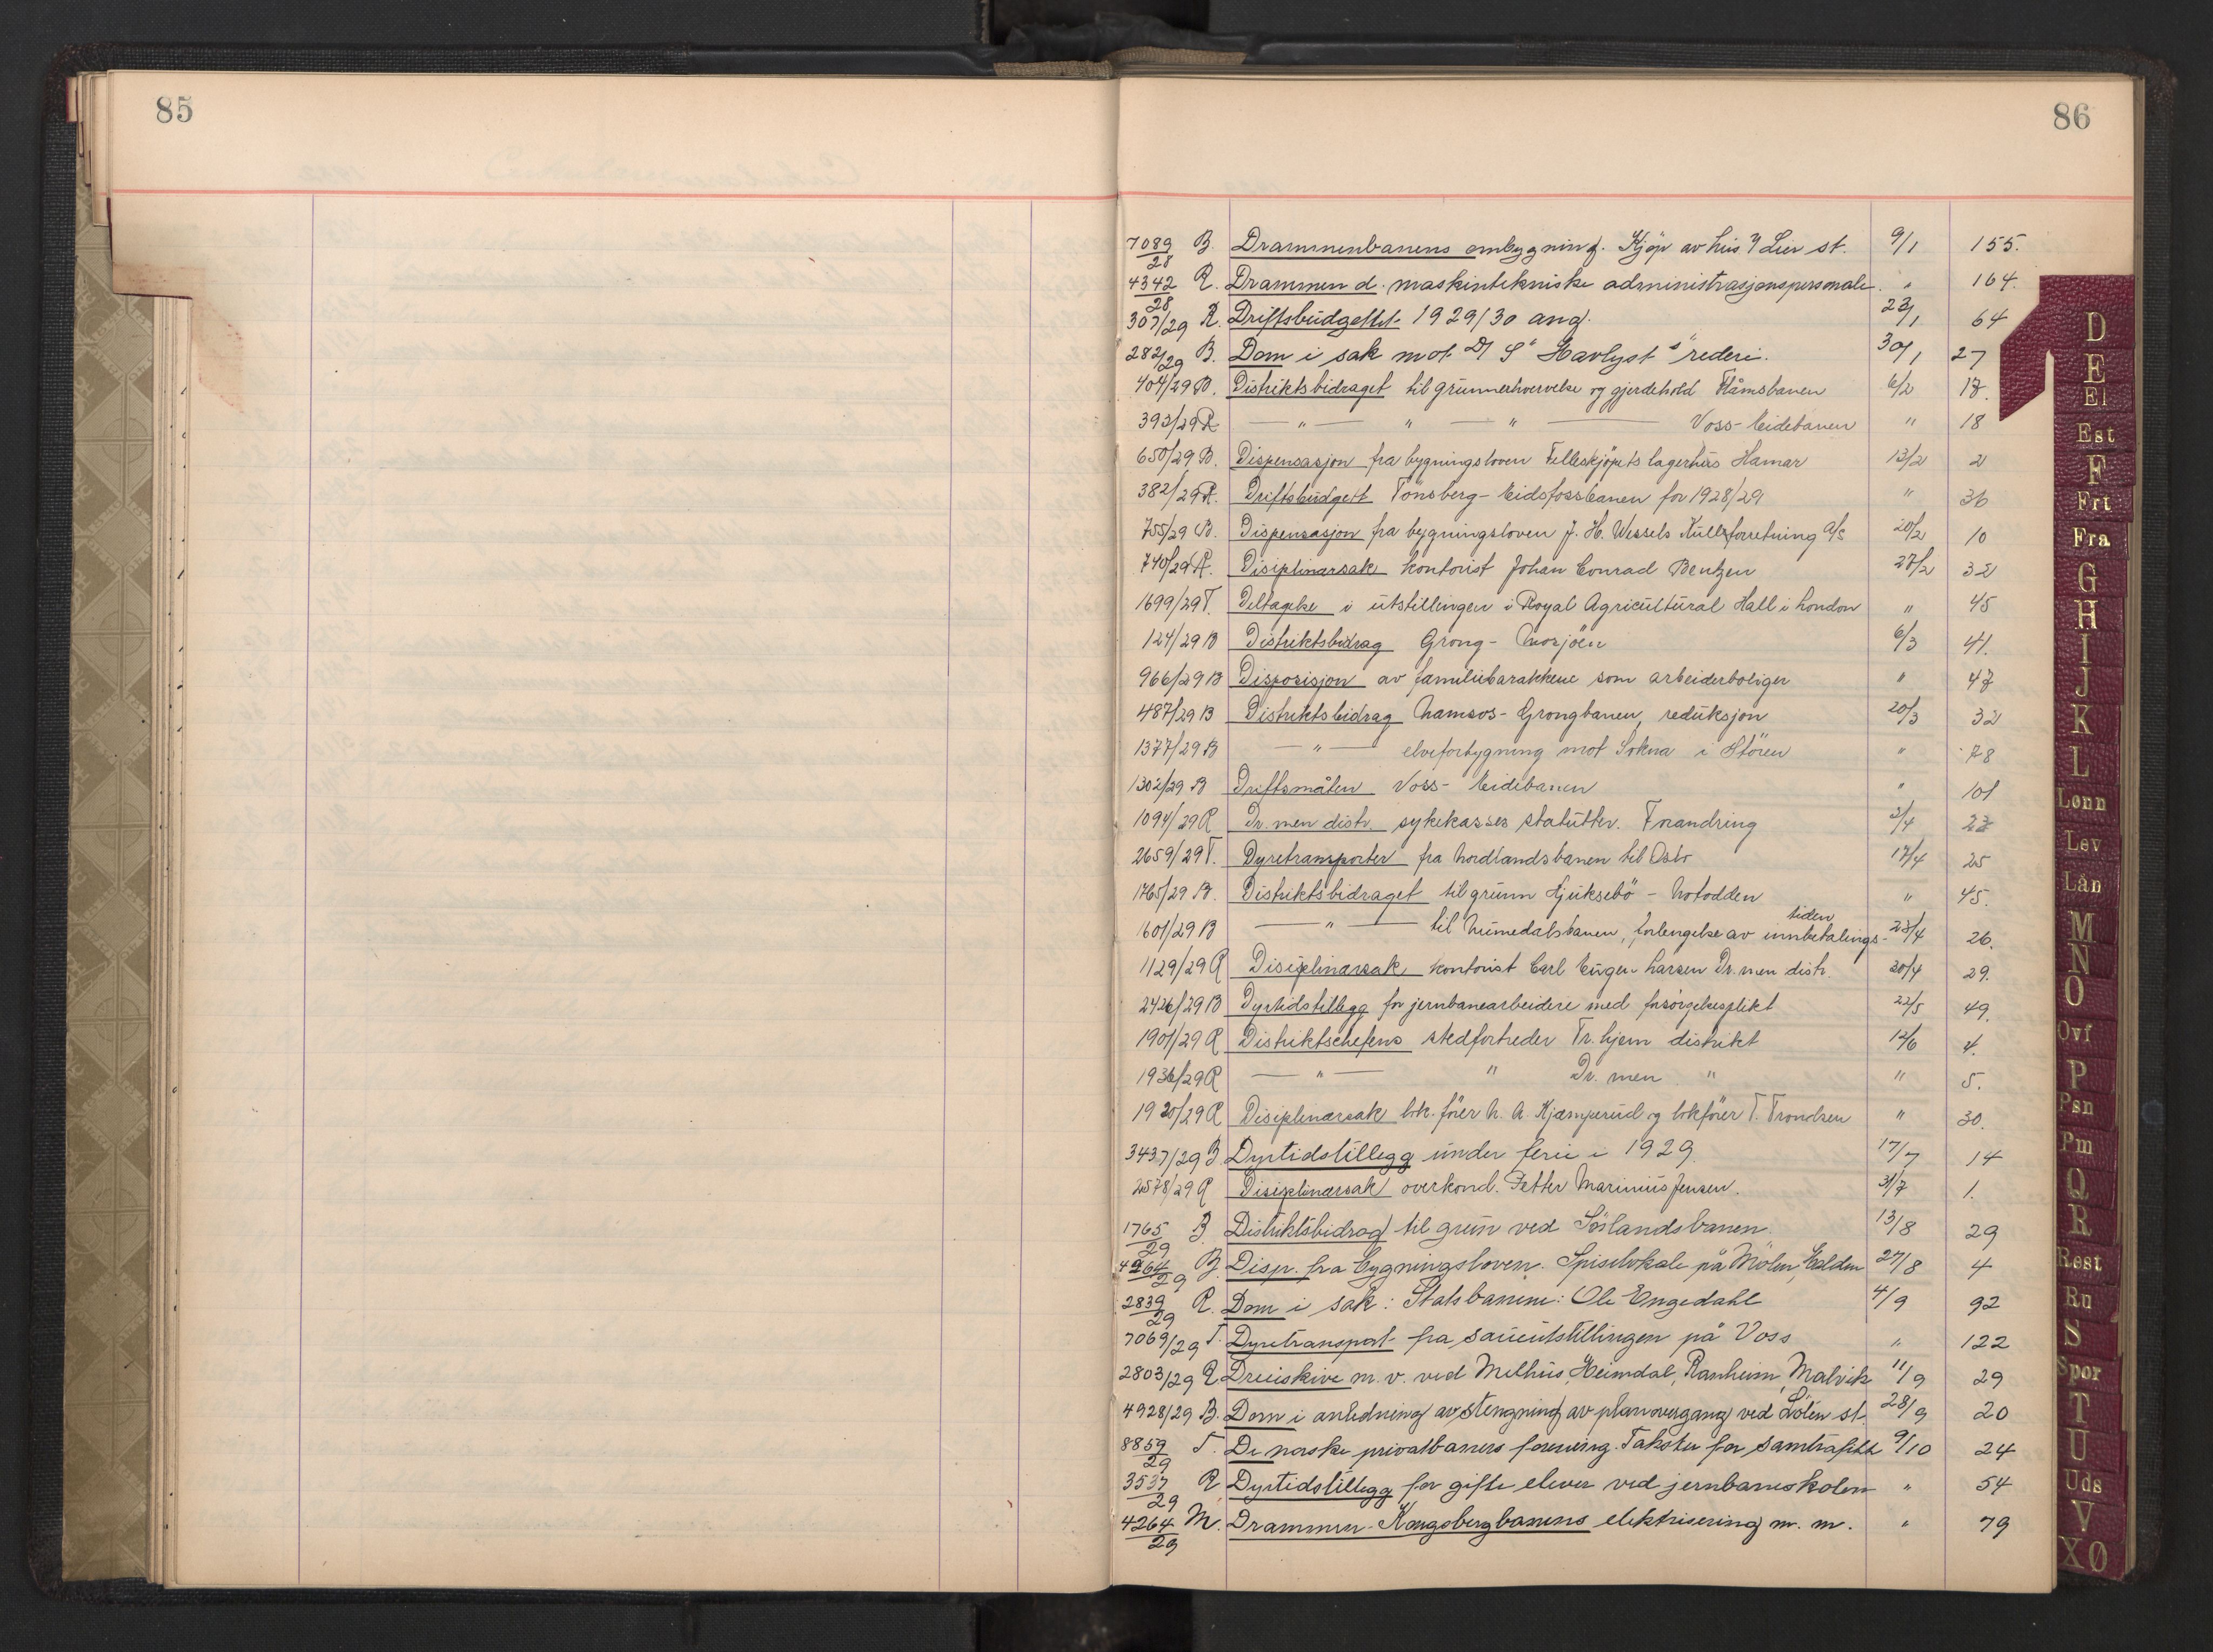 85
86
7089/28 B. Drammenbanens ombygning. Kjöp av hus v/ Lier st. 9/1 155.
4342/28 R. Drammen d. maskintekniske administrasjonspersonale. " 164.
307/29 R. Driftsbudgettet 1929/30 ang. 23/1 64
282/29 B. Dom i sak mot D/S "Havlyst"s rederi. 30/1 27
404/29 B. Distriktsbidraget til grunnerhvervelse og gjerdehold Flåmsbanen 6/2 17.
393/29 R — " — " — " — Voss-Eidebanen " 18
650/29 B. Dispensasjon fra bygningsloven Felleskjöpets lagerhus Hamar 13/2 2
382/29 R. Driftsbudgett Tönsberg-Eidsfossbanen for 1928/29 " 36
755/29 B. Dispensasjon fra bygningsloven J. H. Wessels Kullforretning A/S 20/2 10
740/29 R. Disiplinærsak kontorist Johan Conrad Bentzen 27/2 32
1699/29 T. Deltagelse i utstillingen i Royal Agricultural Hall i London " 45
124/29 B Distriktsbidrag Grong-Mosjöen 6/3 41.
966/29 B Disposisjon av familiebarakkene som arbeiderboliger " 47
487/29 B Distriktsbidrag Namsos-Grongbanen, reduksjon 20/3 32
1377/29 B — " — elveforbygning mot Sokna i Stören " 78
1302/29 B Driftsmåten Voss-Eidebanen " 101
1094/29 R Dr.men distr. sykekasses statutter. Forandring 3/4 23
2659/29 T. Dyretransporter fra Nordlandsbanen til Oslo 17/4 25
1765/29 B. Distriktsbidraget til grunn Hjuksebö-Notodden " 45.
tiden
1601/29 B — " — til Numedalsbanen, forlengelse av innbetalings- 23/4 26.
1129/29 R Disiplinærsak kontorist Carl Eugen Larsen Dr.men distr. 30/4 29.
2426/29 B Dyrtidstillegg for jernbanearbeidere med forsörgelsesplikt 22/5 49.
1901/29 R Distriktschefens stedfortreder Tr.hjem distrikt 12/6 4.
1936/29 R — " — " Dr.men " " 5.
1920/29 R Disiplinærsak lok.förer N. A. Kjæmperud og lokförer T. Trondsen " 30.
3437/29 B Dyrtidstillegg under ferie i 1929. 17/7 14
2578/29 R Disiplinærsak overkond. Petter Marinius Jensen. 31/7 1.
1765/29 B. Distriktsbidrag til grun ved Sörlandsbanen 13/8 29
4264/29 B. Disp. fra bygningsloven. Spiselokale på Mölen, Halden 27/8 4
2839/29 R. Dom i sak: Statsbanene: Ole Engedahl 4/9 92
7069/29 T. Dyretransport fra saueutstillingen på Voss " 122
2803/29 R Dreieskive m.v. ved Melhus, Heimdal, Ranheim, Malvik 11/9 29
4928/29 B. Dom i anledning av stengning av planovergang ved Löten st. 28/9 20
8859/29 T. De norske privatbaners forening. Takster for samtrafikk 9/10 24
3537/29 R Dyrtidstillegg for gifte elever ved jernbaneskolen " 54
4264/29 M. Drammen-Kongsbergbanens elektrisering m.m. " 79
D
E
El
Est
F
Frt
Fra
G
H
I
J
K
L
Lønn
Lev
Lån
M
N
O
Ovf
P
Psn
Pm
Q
R
Rest
Rn
S
Spor
T
U
Uds
V
XØ